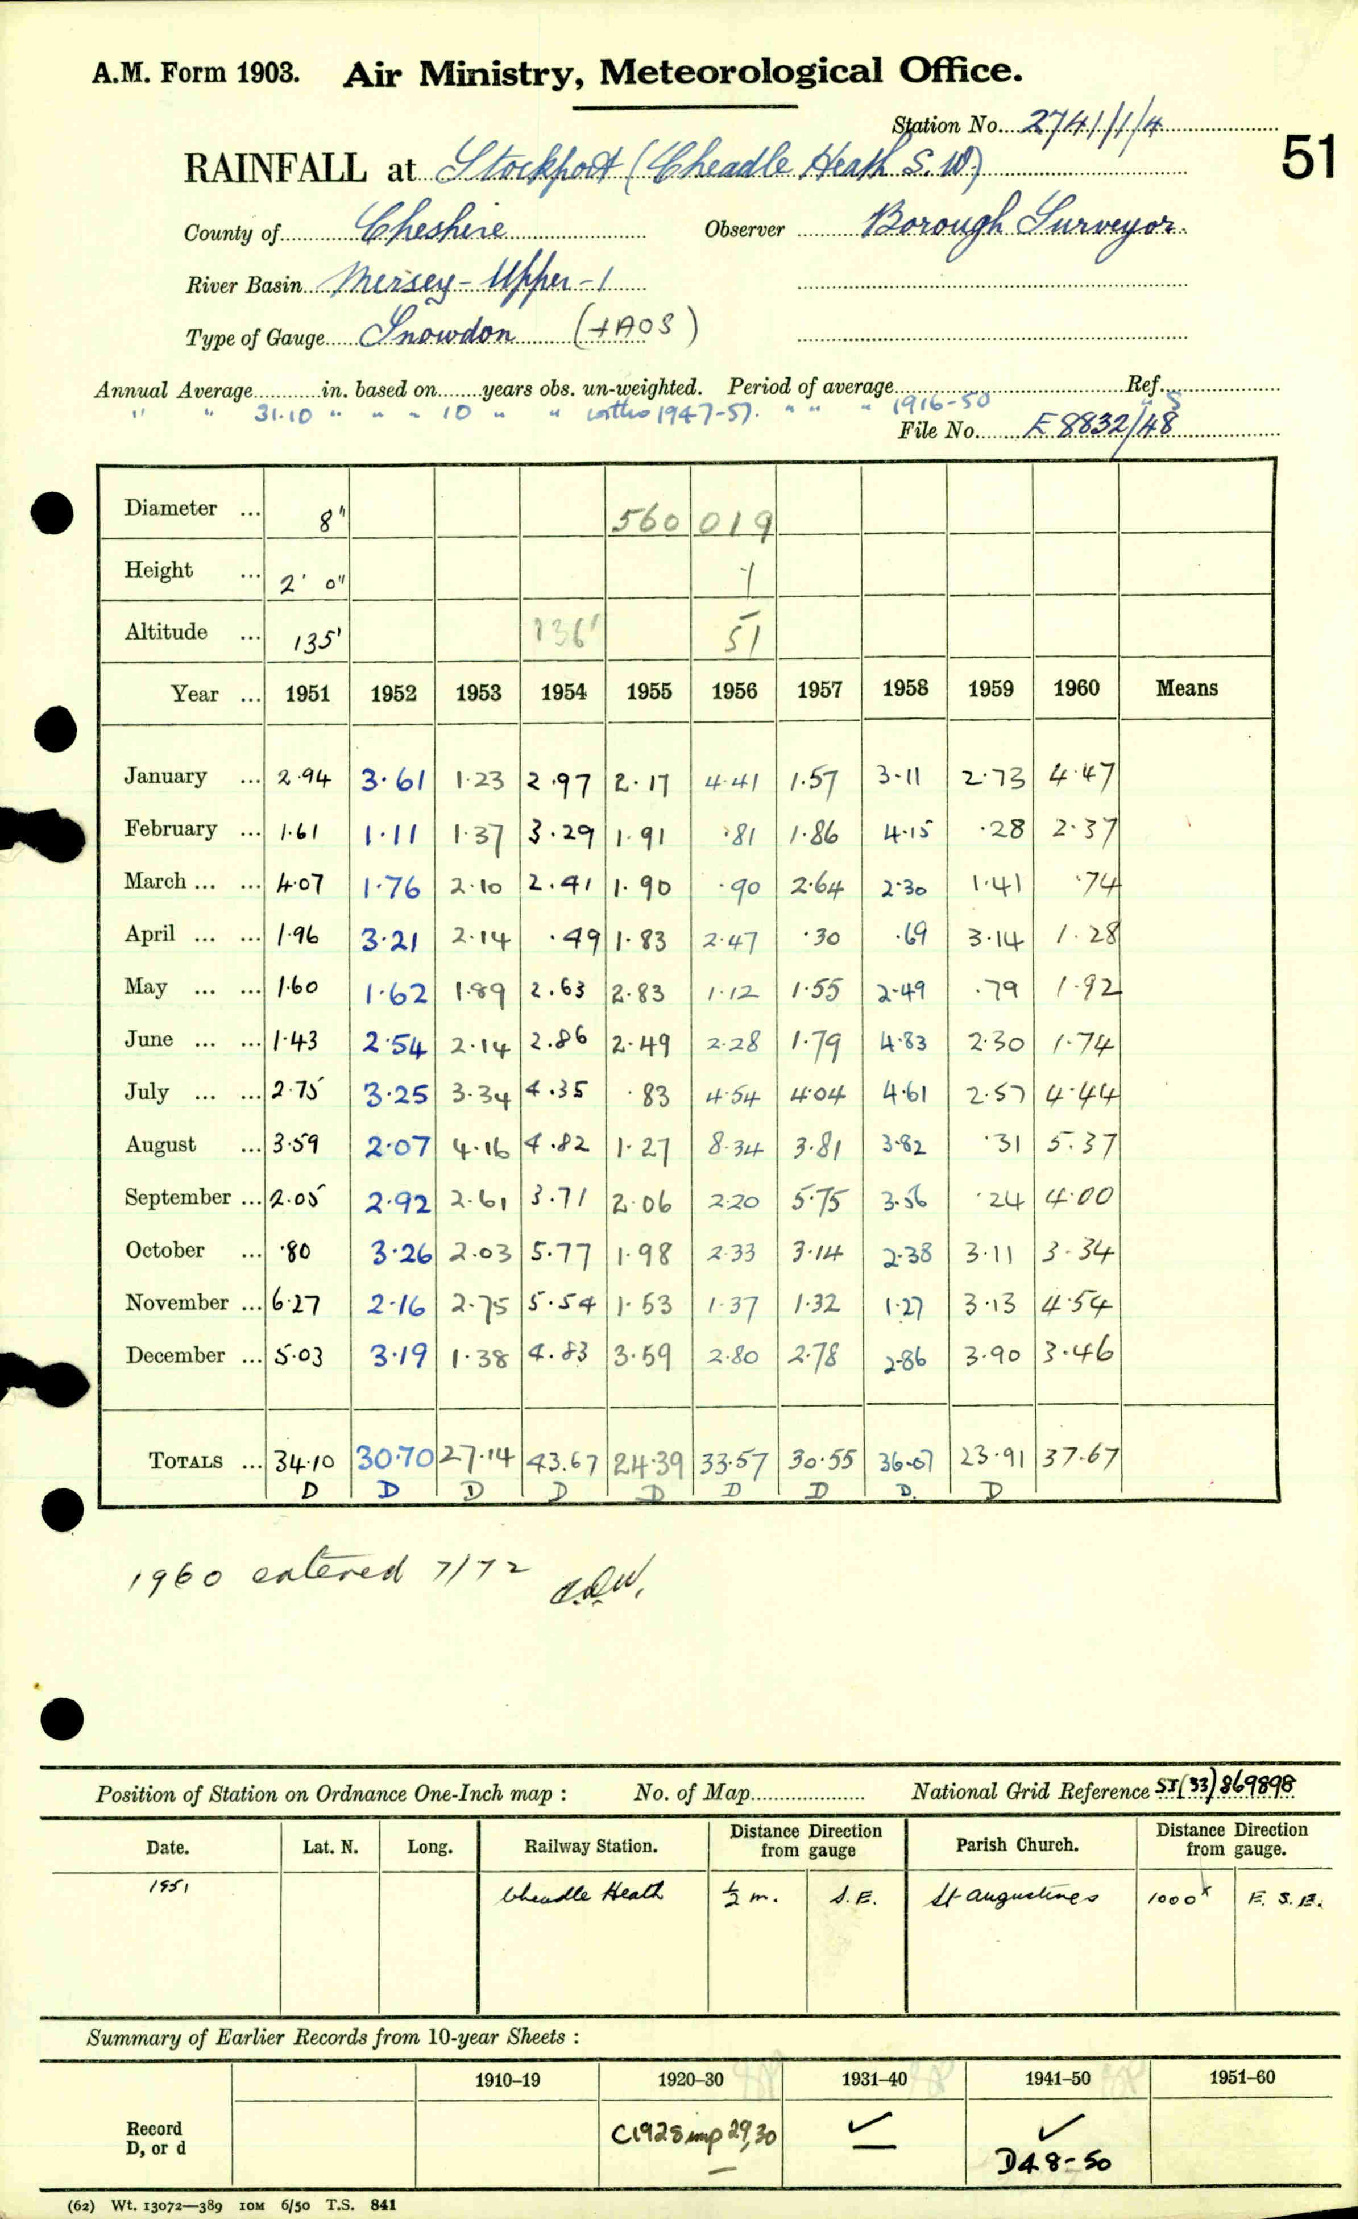 A.M. Form 1903. Air Ministry, Meteorological Office.
Station No. 2741/1/4
51
RAINFALL at Stockport (Cheadle Heath S.W.)
County of Cheshire Observer Borough Surveyor.
River Basin Mersey-Upper-1
Type of Gauge Snowdon (+AOS)
Annual Average in. based on years obs. un-weighted. Period of average Ref.
" " 31.10 " " " 10 " " 1947-57. " " " 1916-50 " S
File No. E 8832/48
Diameter ... 8" 560 019
Height ... 2' 0" 1
Altitude ... 135' 136' 51
Year ... 1951 1952 1953 1954 1955 1956 1957 1958 1959 1960 Means
January ... 2.94 3.61 1.23 2.97 2.17 4.41 1.57 3.11 2.73 4.47
February ... 1.61 1.11 1.37 3.29 1.91 .81 1.86 4.15 .28 2.37
March ... ... 4.07 1.76 2.10 2.41 1.90 .90 2.64 2.30 1.41 .74
April ... ... 1.96 3.21 2.14 .49 1.83 2.47 .30 .69 3.14 1.28
May ... ... 1.60 1.62 1.89 2.63 2.83 1.12 1.55 2.49 .79 1.92
June ... ... 1.43 2.54 2.14 2.86 2.49 2.28 1.79 4.83 2.30 1.74
July ... ... 2.75 3.25 3.34 4.35 .83 4.54 4.04 4.61 2.57 4.44
August ... 3.59 2.07 4.16 4.82 1.27 8.34 3.81 3.82 .31 5.37
September ... 2.05 2.92 2.61 3.71 2.06 2.20 5.75 3.56 .24 4.00
October ... .80 3.26 2.03 5.77 1.98 2.33 3.14 2.38 3.11 3.34
November ... 6.27 2.16 2.75 5.54 1.53 1.37 1.32 1.27 3.13 4.54
December ... 5.03 3.19 1.38 4.83 3.59 2.80 2.78 2.86 3.90 3.46
TOTALS ... 34.10 30.70 27.14 43.67 24.39 33.57 30.55 36.07 23.91 37.67
D D D D D D D D. D
1960 entered 7/72
Position of Station on Ordnance One-Inch map : No. of Map National Grid Reference SJ(33)869898
Date. Lat. N. Long. Railway Station. Distance from Direction gauge Parish Church. Distance from Direction gauge.
1951 Cheadle Heath ½ m. S.E. St Augustines 1000x E. S.E.
Summary of Earlier Records from 10-year Sheets :
1910–19 1920–30 1931–40 1941–50 1951–60
Record D, or d C1928 imp 29,30 ✓ ✓
D48-50
(62) Wt. 13072—389 10M 6/50 T.S. 841